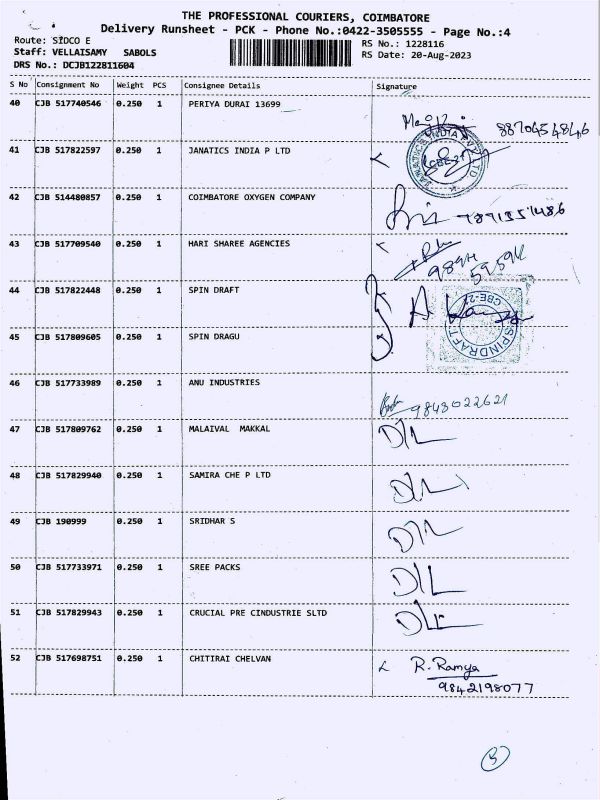 THE PROFESSIONAL COURIERS, COIMBATORE
Delivery Runsheet - PCK - Phone No.:0422-3505555 - Page No.:4
Route: SIDCO E
RS No.: 1228116
Staff: VELLAISAMY SABOLS
RS Date: 20-Aug-2023
DRS No.: DCJB122811604
S No Consignment No Weight PCS Consignee Details Signature
40 CJB 517740546 0.250 1 PERIYA DURAI 13699
8870454846
41 CJB 517822597 0.250 1 JANATICS INDIA P LTD
JANATICS INDIA PVT LTD
CBE-21
42 CJB 514480857 0.250 1 COIMBATORE OXYGEN COMPANY
43 CJB 517709540 0.250 1 HARI SHAREE AGENCIES
44 CJB 517822448 0.250 1 SPIN DRAFT
CBE-21
SPINDRAFT
45 CJB 517809605 0.250 1 SPIN DRAGU
46 CJB 517733989 0.250 1 ANU INDUSTRIES
9843022621
47 CJB 517809762 0.250 1 MALAIVAL MAKKAL D/L
48 CJB 517829940 0.250 1 SAMIRA CHE P LTD D/L
49 CJB 190999 0.250 1 SRIDHAR S D/L
50 CJB 517733971 0.250 1 SREE PACKS D/L
51 CJB 517829943 0.250 1 CRUCIAL PRE CINDUSTRIE SLTD D/L
52 CJB 517698751 0.250 1 CHITIRAI CHELVAN R. Ramya
9842198077